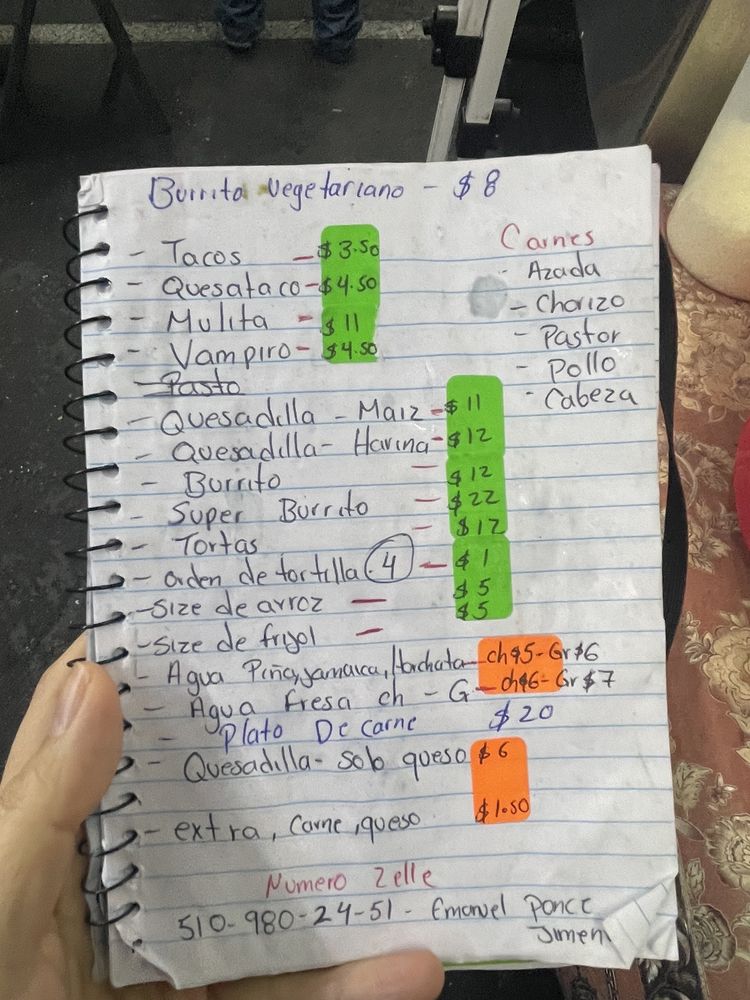 Burrito vegetariano - $8
Carnes
- Tacos - $3.50
- Azada
- Quesataco - $4.50
- Chorizo
- Mulita - $11
- Pastor
- Vampiro - $4.50
- Pollo
- Pasto
- Cabeza
- Quesadilla - Maiz - $11
- Quesadilla - Harina - $12
- Burrito - $12
- Super Burrito - $22
- Tortas - $12
- orden de tortilla 4 - $1
- size de arroz - $5
- size de frijol - $5
- Agua Piña, jamaica, Horchata - ch$5 - Gr$6
- Agua fresa ch - G - ch$6 - Gr$7
- Plato De carne $20
- Quesadilla - solo queso $6
- extra, carne, queso $1.50
Numero Zelle
510-980-24-51 - Emanuel Ponce
Jimen